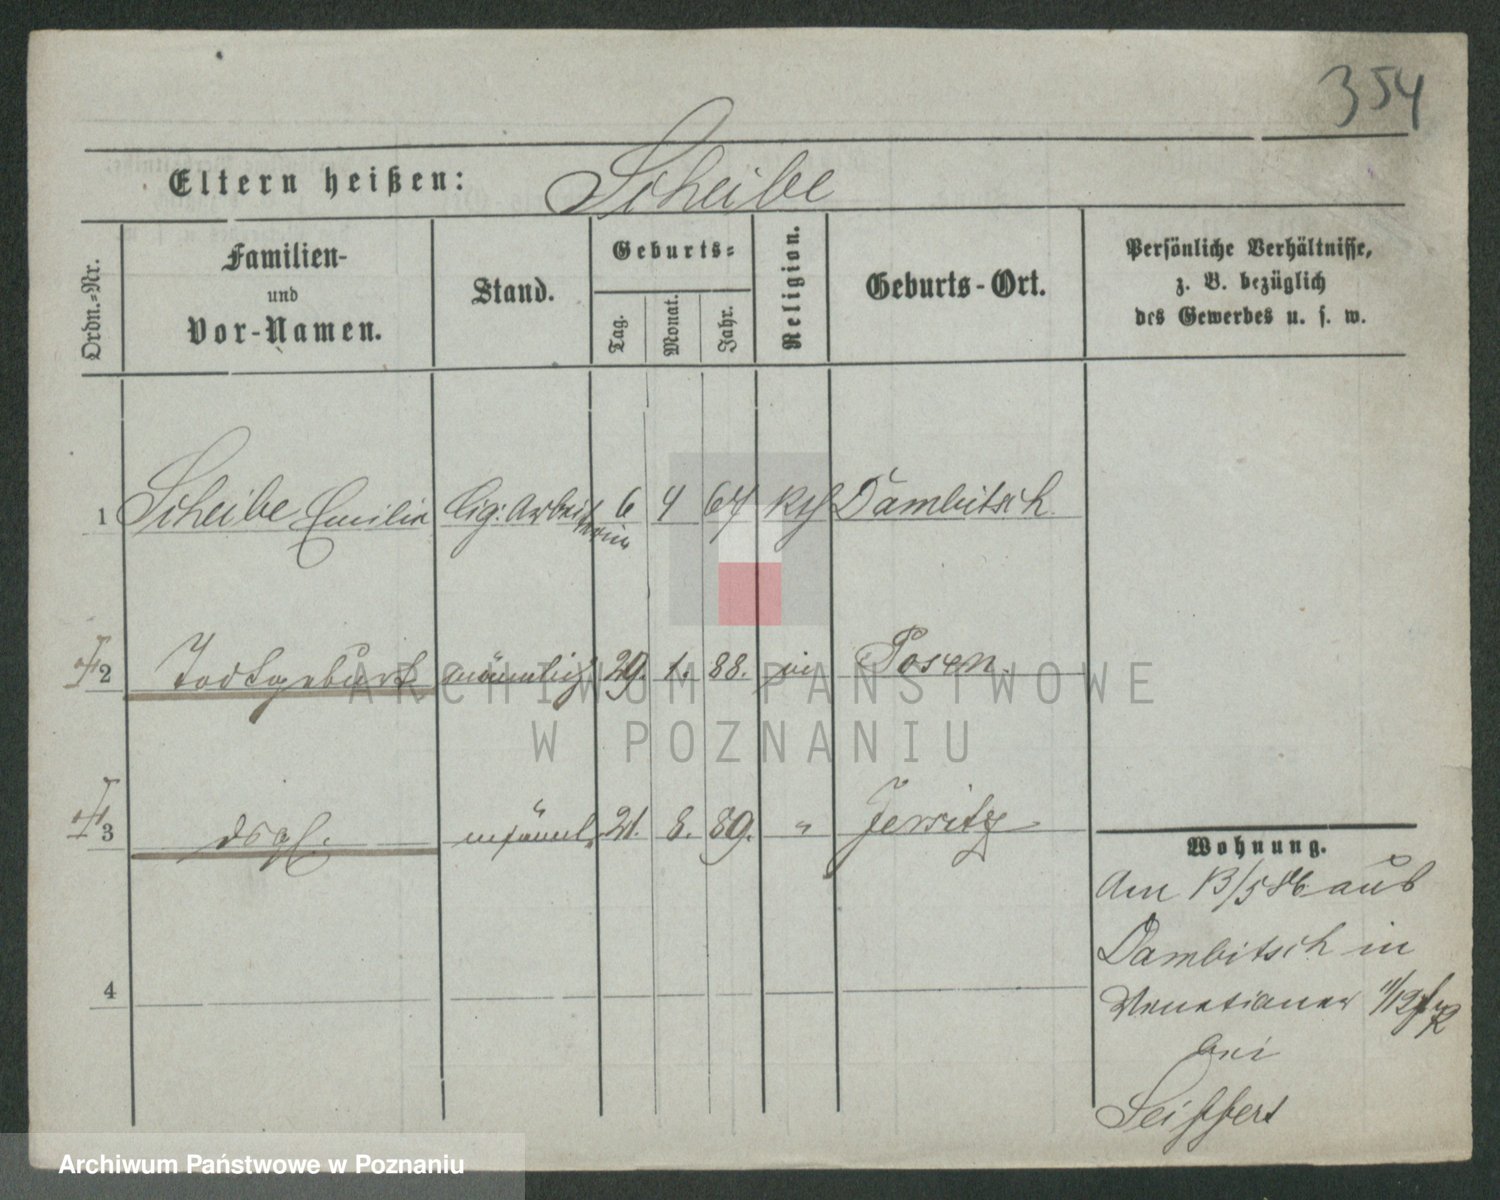 354
Eltern heißen: Scheibe
Ordn.-Nr.
Familien-
und
Vor-Namen.
Stand.
Geburts-
Tag.
Monat.
Jahr.
Religion.
Geburts-Ort.
Persönliche Verhältnisse,
z. B. bezüglich
des Gewerbes u. s. w.
1 Scheibe Emilie Cig: Arbeiterin 6 4 64 kth Dambitsch
2 Todtgeburt männlich 29. 1. 88. Posen
3 dsgl. männl. 21. 8. 89. " Jersitz
4
Wohnung.
Am 13/5 86 aus
Dambitsch in
Venetianer 11/12
bei
Seiffert
ARCHIWUM PAŃSTWOWE
W POZNANIU
Archiwum Państwowe w Poznaniu